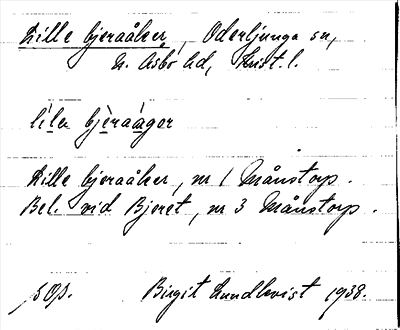 Lille bjeraåker, Oderljunga sn,
N. Åsbo hd, Krist. l.
lìlɐ bjèraágər
Lille bjeraåker, nr 1 Månstorp.
Bel. vid Bjeret, nr 3 Månstorp.
Birgit Lundkvist 1938.